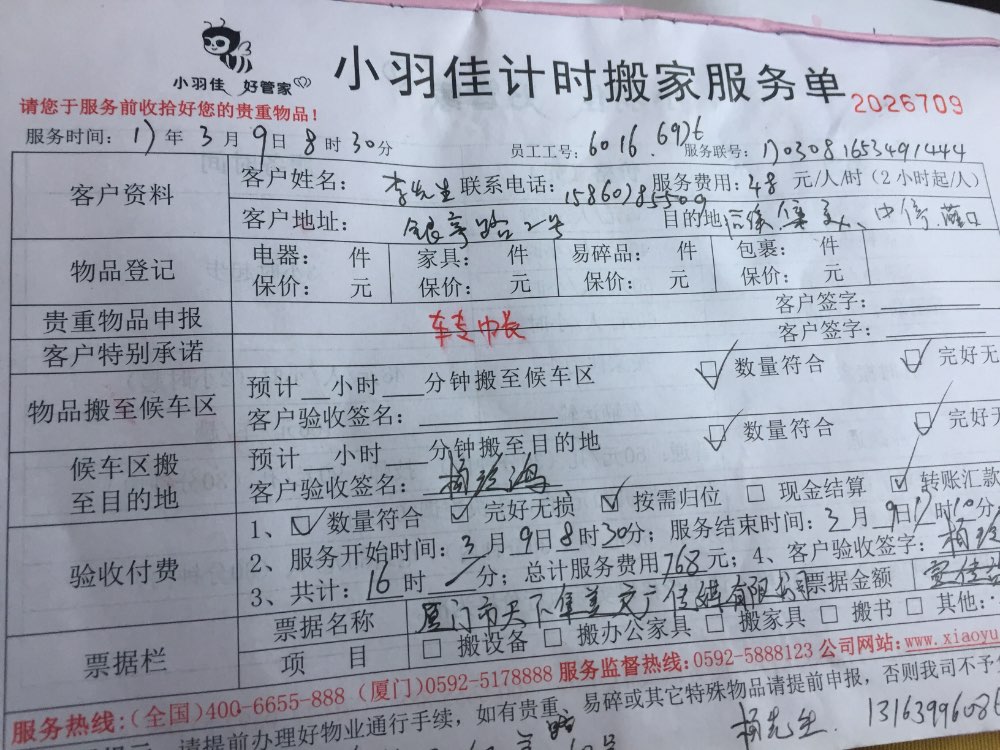 小羽佳 好管家
小羽佳计时搬家服务单
2026709
请您于服务前收拾好您的贵重物品！
服务时间：17年3月9日8时30分 员工工号：6016 6976 服务联号：1703081653491444
客户资料 客户姓名：李先生 联系电话：15860785509 服务费用：48元/人/时（2小时起/人）
客户地址： 路2号 目的地 集美、中
物品登记 电器： 件 家具： 件 易碎品： 件 包裹： 件
保价： 元 保价： 元 保价： 元 保价： 元
贵重物品申报 客户签字：
客户特别承诺 客户签字：
物品搬至候车区 预计 小时 分钟搬至候车区 数量符合 完好无
客户验收签名：
候车区搬至目的地 预计 小时 分钟搬至目的地 数量符合 完好无
客户验收签名：
验收付费 1、数量符合 完好无损 按需归位 现金结算 转账汇款
2、服务开始时间：3月9日8时30分；服务结束时间：3月9日 时10分
3、共计：16时 分；总计服务费用768元；4、客户验收签字：
票据栏 票据名称 厦门市天下集美文广传媒有限公司 票据金额
项 目 搬设备 搬办公家具 搬家具 搬书 其他：
服务热线：（全国）400-6655-888（厦门）0592-5178888 服务监督热线：0592-5888123 公司网站：www.xiaoyu
请提前办理好物业通行手续，如有贵重、易碎或其它特殊物品请提前申报，否则我司不予
杨先生 1316399608